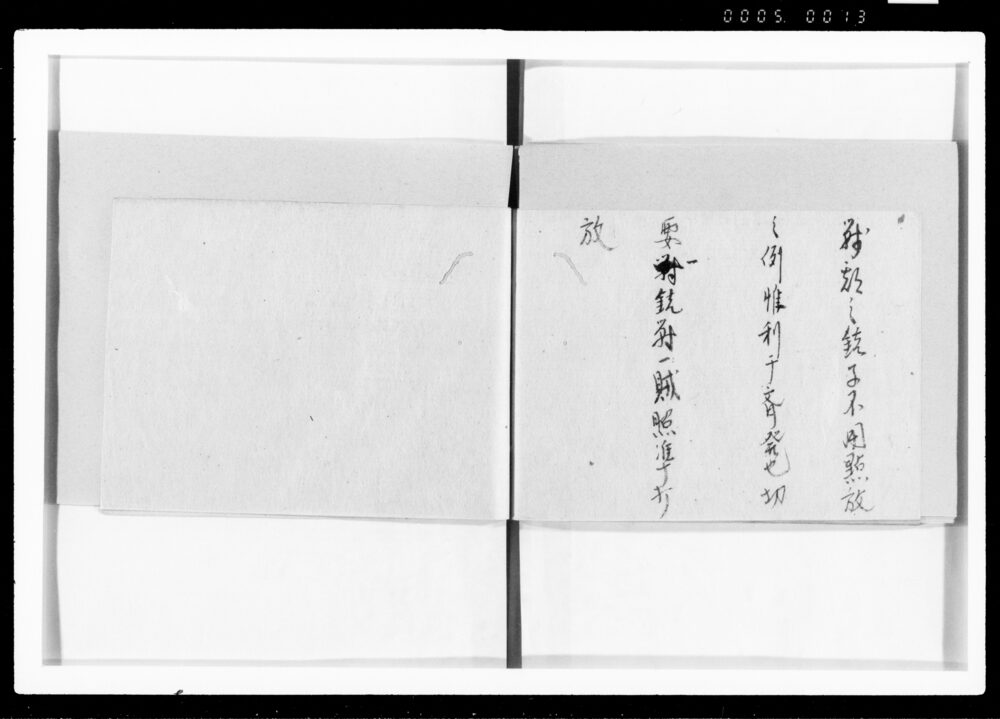 0005. 0013
之銃子不用點放
之例惟利于齊發也切
要一銃對一賊照准才打
放